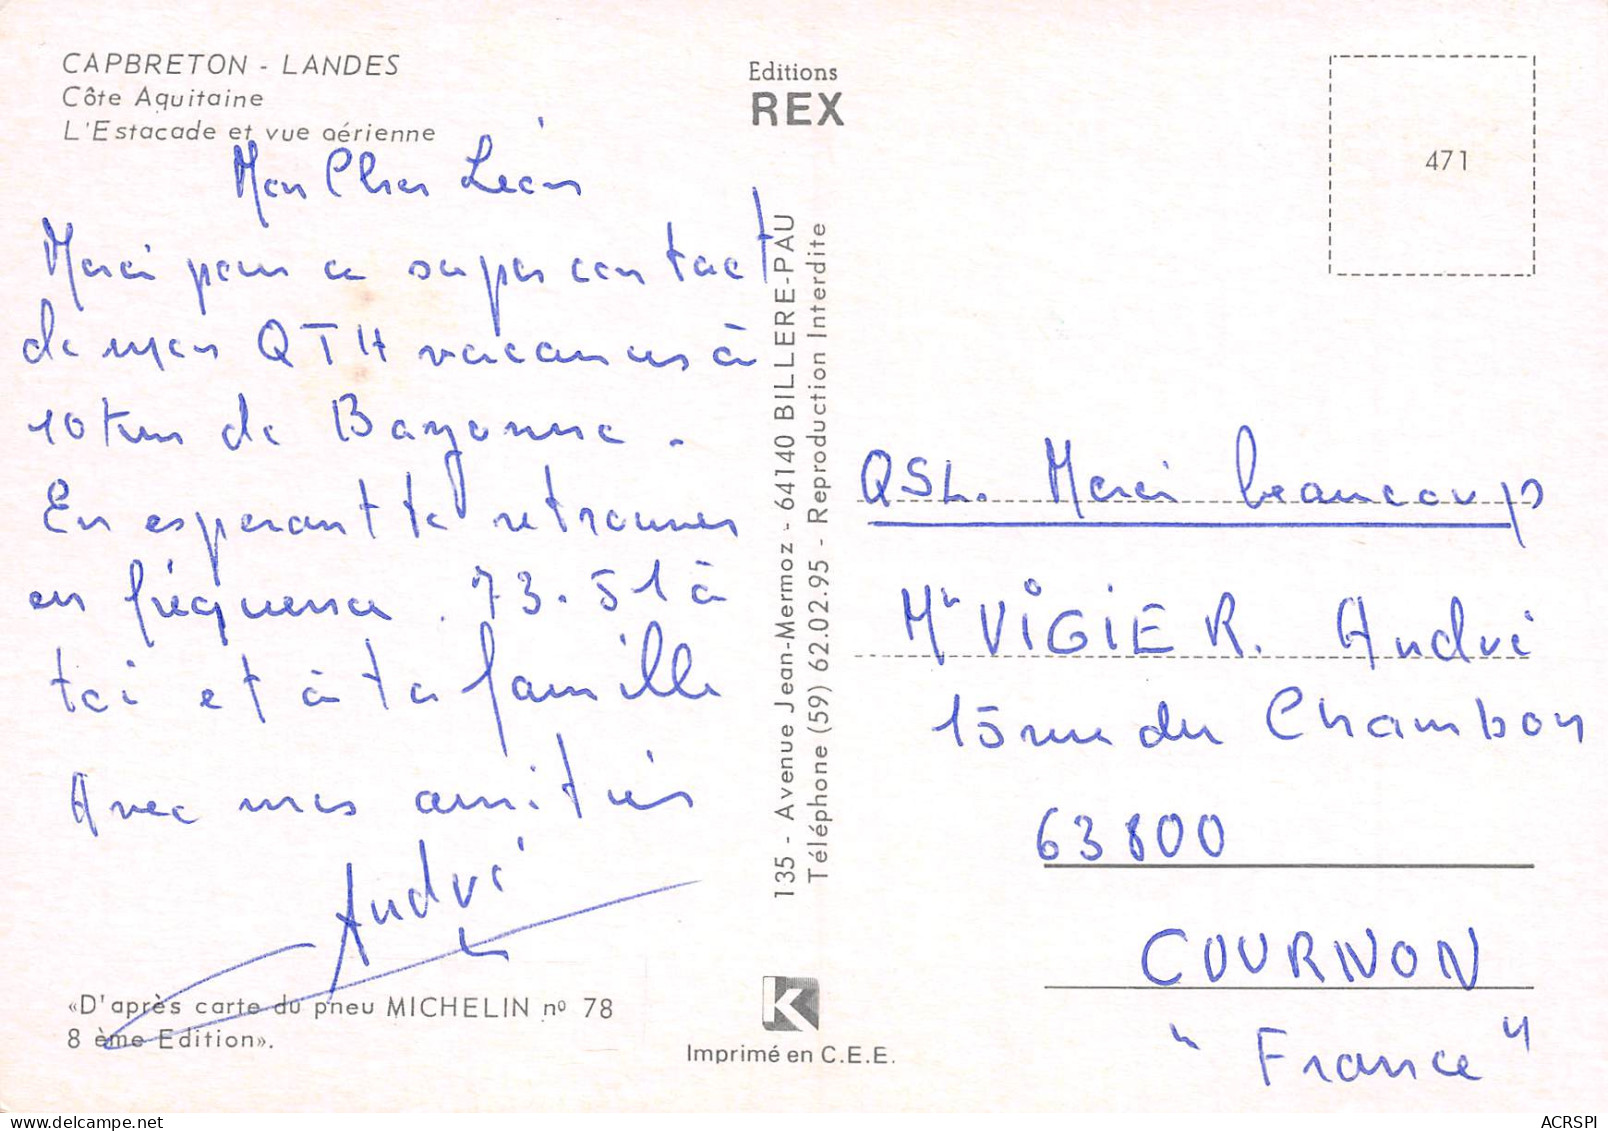 CAPBRETON - LANDES
Côte Aquitaine
L'Estacade et vue aérienne
Mon Cher Léon
Merci pour ce super contact
de mon QTH vacances à
10 km de Bayonne.
En esperant te retrouver
en fréquence. 73.51 à
toi et à ta famille
Avec mes amitiés
André
«D'après carte du pneu MICHELIN nº 78
8 ème Edition».
Editions
REX
135 - Avenue Jean-Mermoz - 64140 BILLERE-PAU
Téléphone (59) 62.02.95 - Reproduction Interdite
K
Imprimé en C.E.E.
471
QSL. Merci beaucoup
Mr VIGIER. André
15 rue du Chambon
63800
COURNON
"France"
ACRSPI